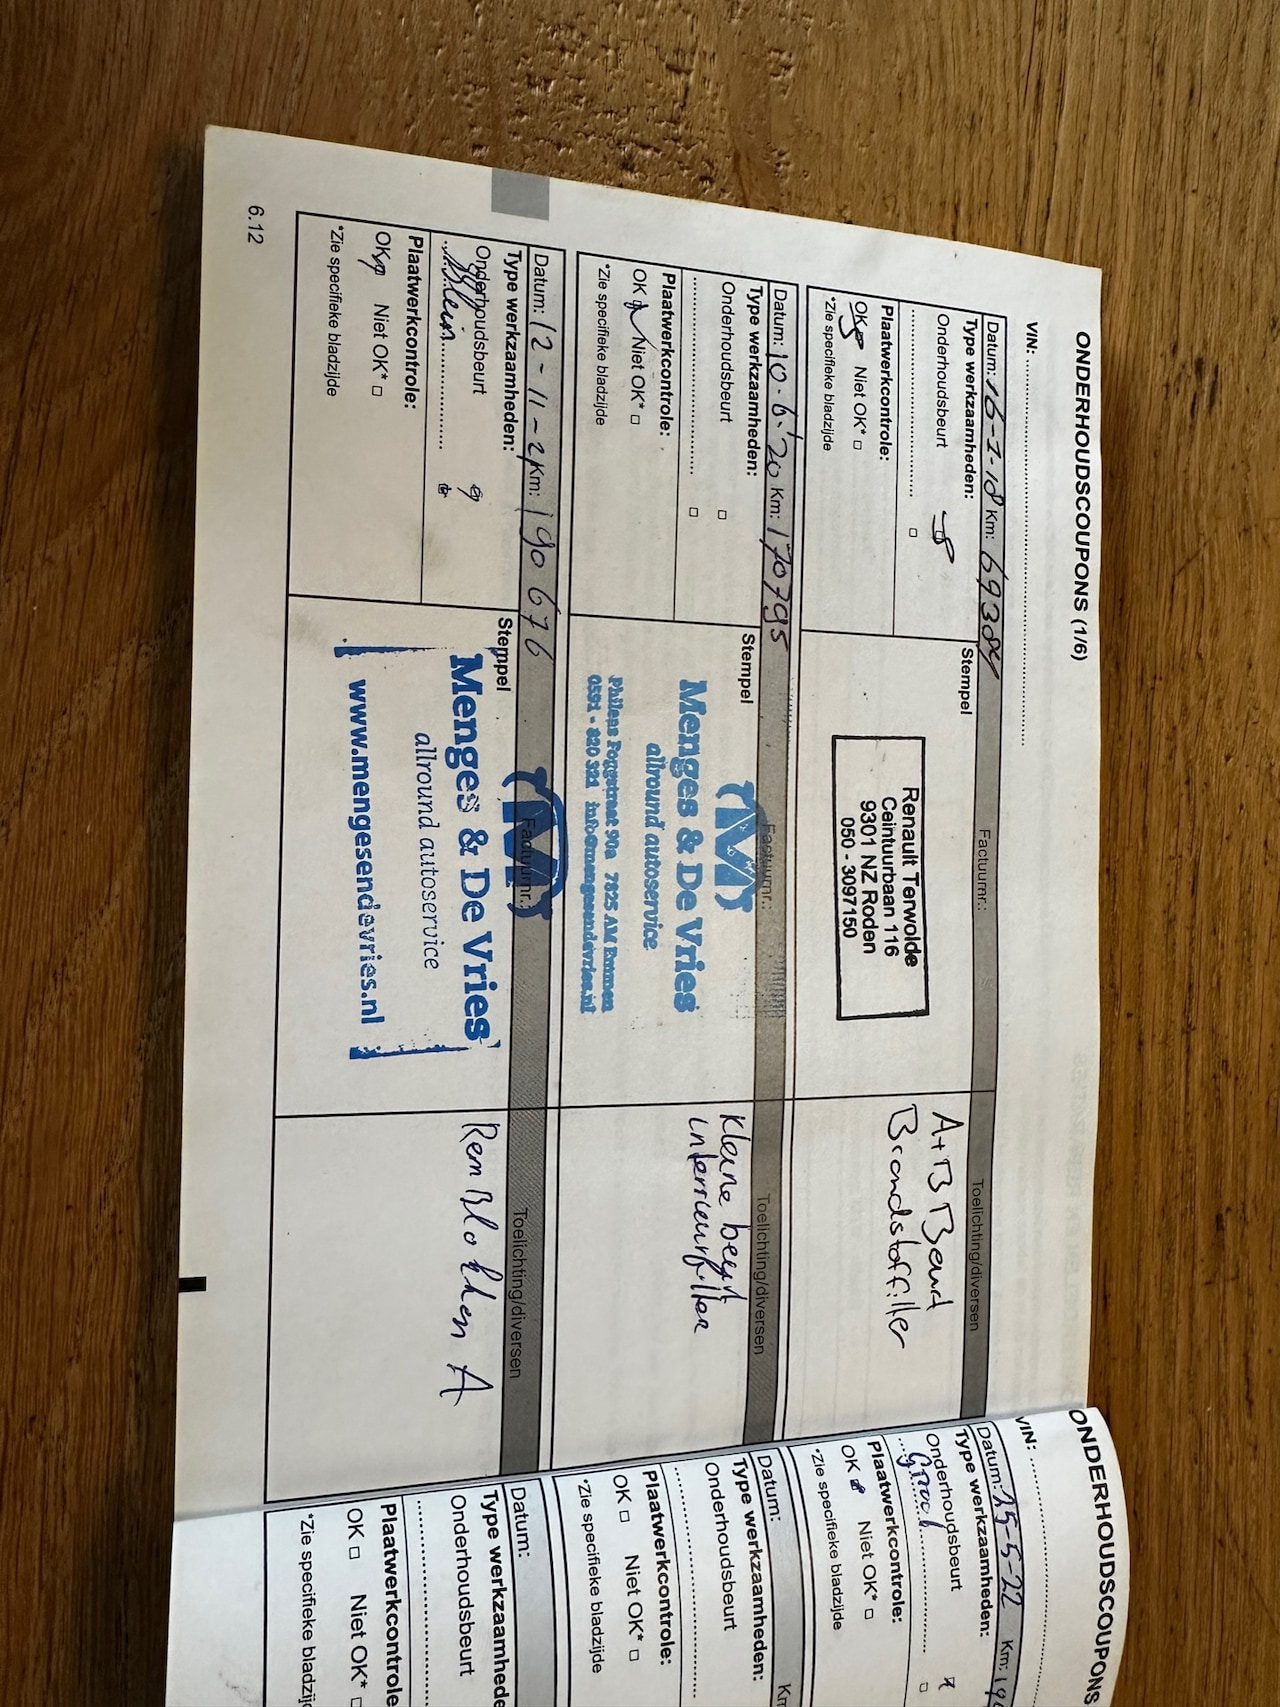 ONDERHOUDSCOUPONS (1/6)
VIN:
Datum: 16-2-18 Km: 69384 Factuurnr.: Toelichting/diversen
Type werkzaamheden:
Onderhoudsbeurt
Plaatwerkcontrole:
OK Niet OK*
*Zie specifieke bladzijde
Stempel
Renault Terwolde
Ceintuurbaan 116
9301 NZ Roden
050 - 3097150
A+B Beurt
Brandstoffilter
Datum: 10-6-'20 Km: 170795 Factuurnr.: Toelichting/diversen
Type werkzaamheden:
Onderhoudsbeurt
Plaatwerkcontrole:
OK Niet OK*
*Zie specifieke bladzijde
Stempel
M
Menges & De Vries
allround autoservice
Phileas Foggstraat 90a 7825 AM Emmen
0591 - 820 321 info@mengesendevries.nl
Kleine beurt
interieurfilter
Datum: 12-11-21 Km: 190676 Factuurnr.: Toelichting/diversen
Type werkzaamheden:
Onderhoudsbeurt
Klein
Plaatwerkcontrole:
OK Niet OK*
*Zie specifieke bladzijde
Stempel
M
Menges & De Vries
allround autoservice
www.mengesendevries.nl
RemBlokken A
6.12
ONDERHOUDSCOUPONS
VIN:
Datum: 25-5-22 Km:
Type werkzaamheden:
Onderhoudsbeurt
Groot
Plaatwerkcontrole:
OK Niet OK*
*Zie specifieke bladzijde
Datum: Km
Type werkzaamheden:
Onderhoudsbeurt
Plaatwerkcontrole:
OK Niet OK*
*Zie specifieke bladzijde
Datum:
Type werkzaamhed
Onderhoudsbeurt
Plaatwerkcontrole
OK Niet OK*
*Zie specifieke bladzij